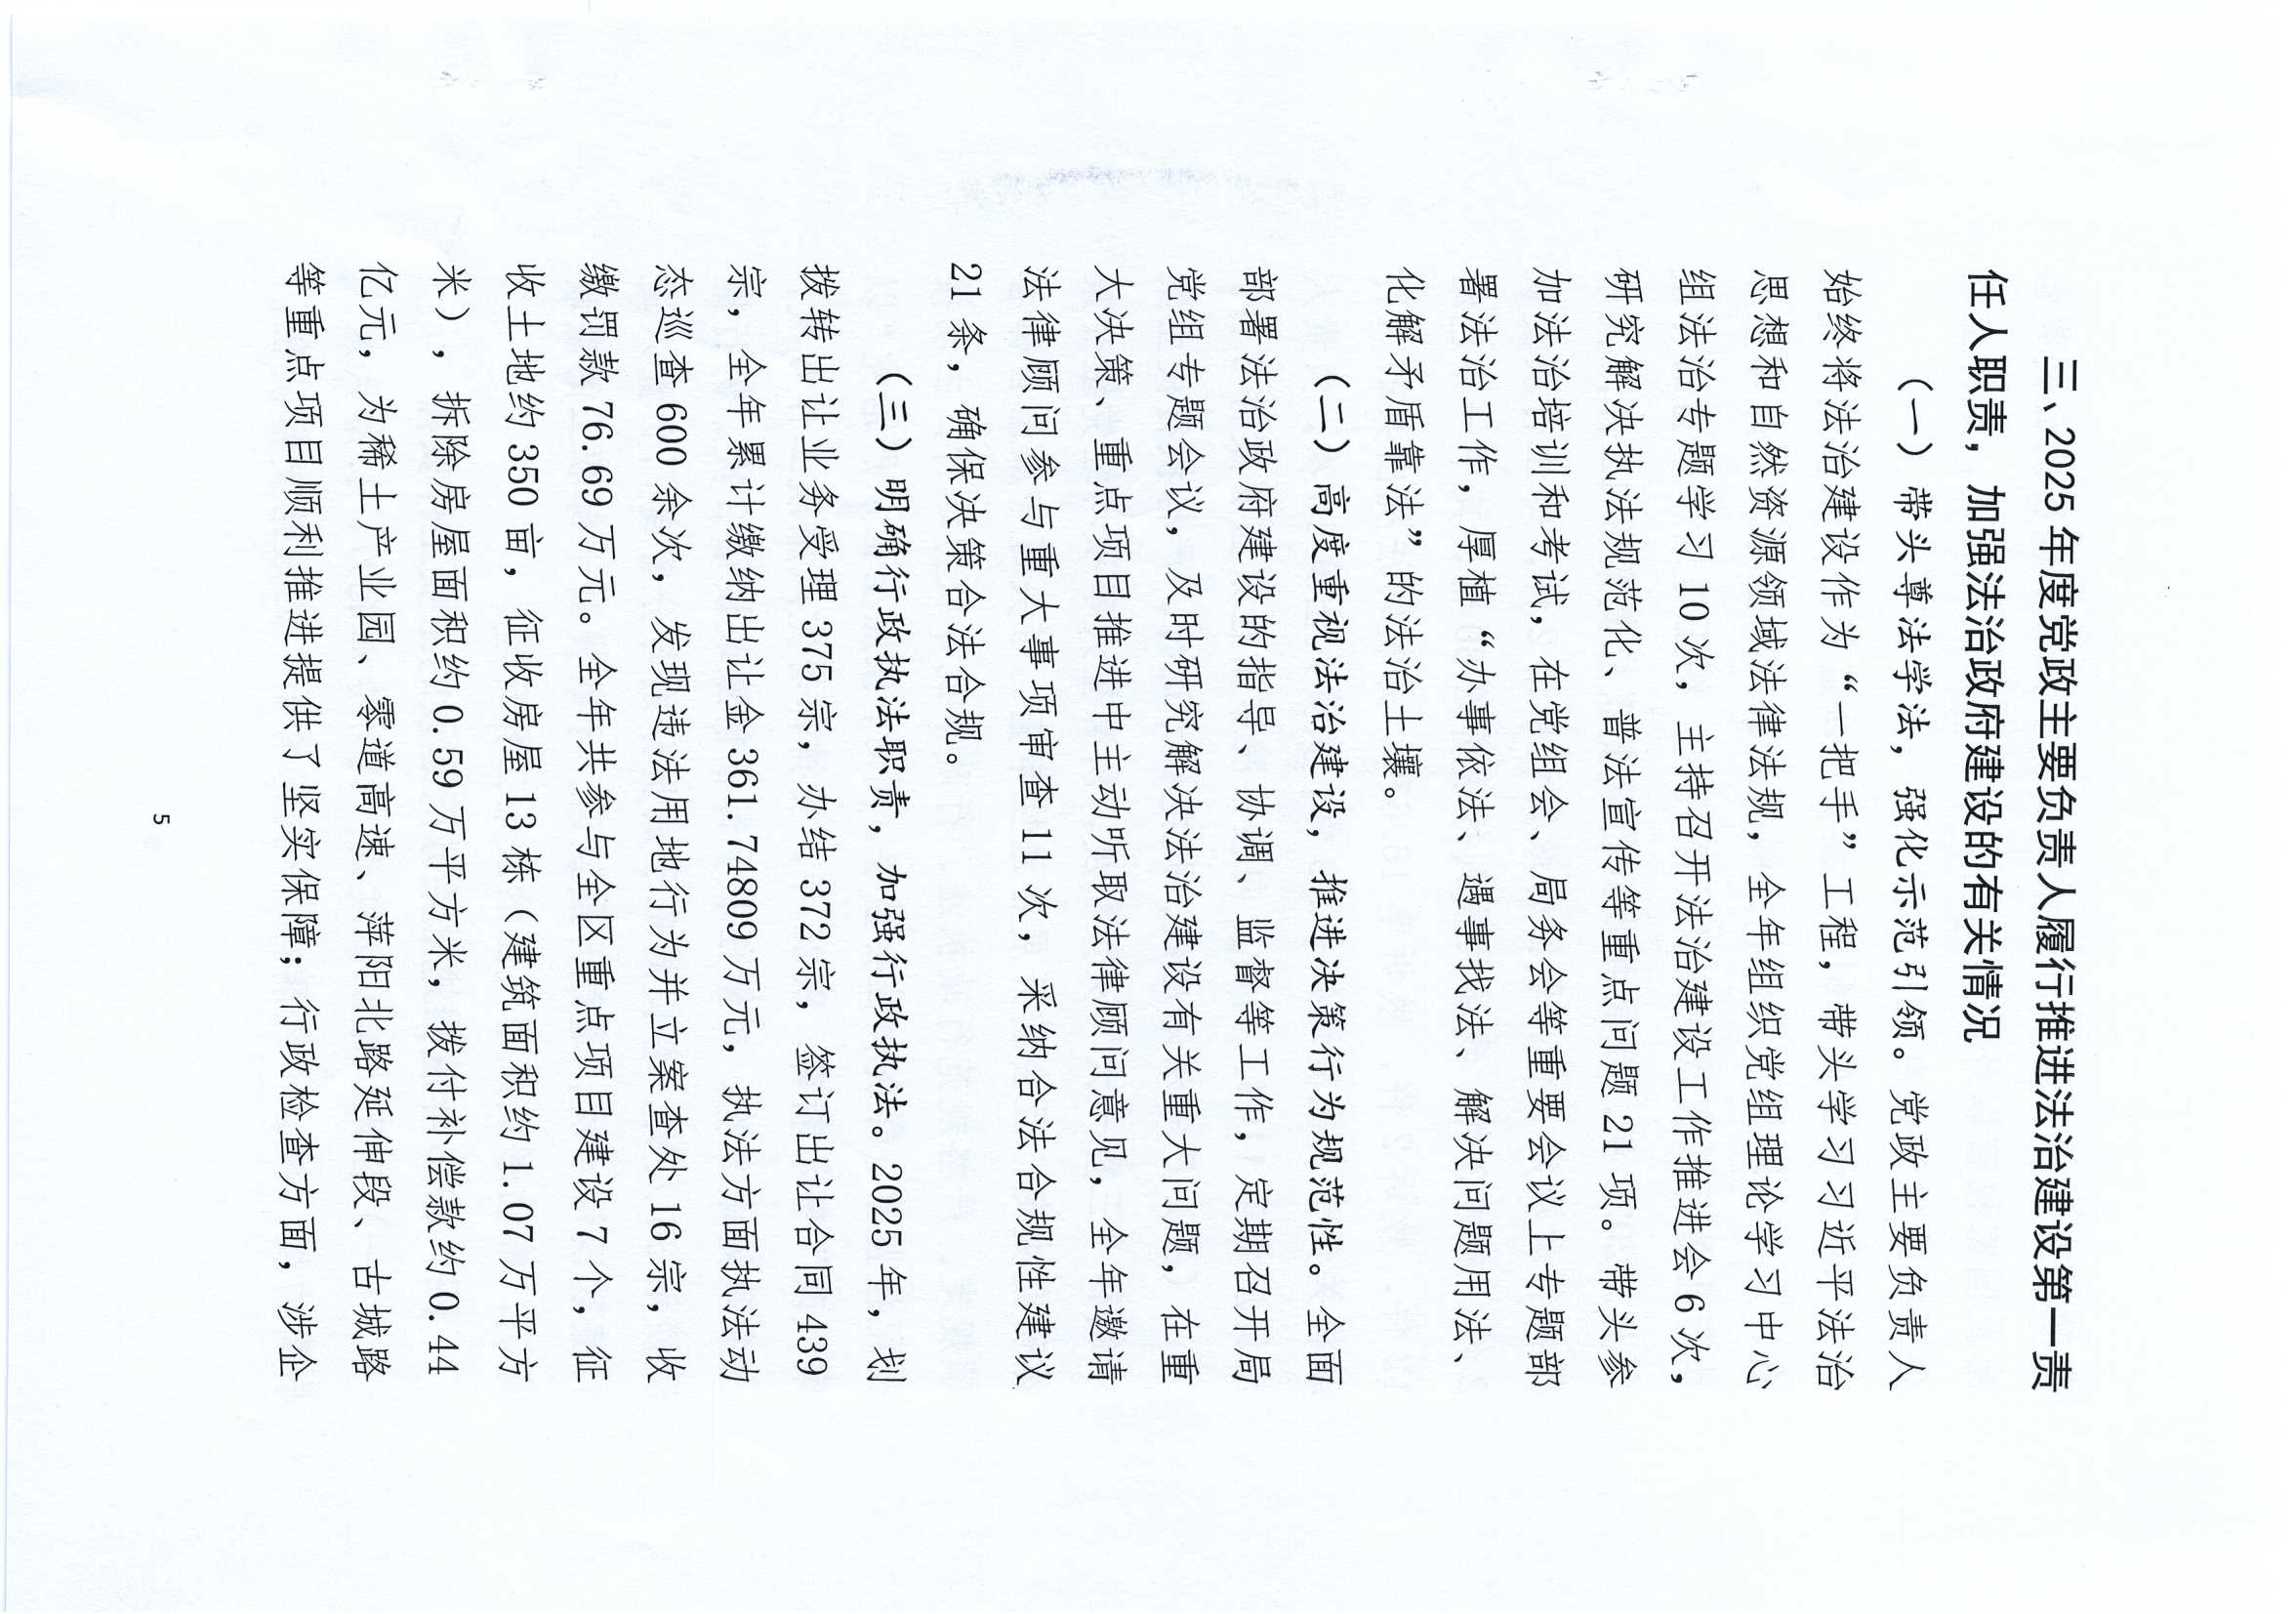 三、2025 年度党政主要负责人履行推进法治建设第一责
任人职责，加强法治政府建设的有关情况
（一）带头尊法学法，强化示范引领。党政主要负责人
始终将法治建设作为“一把手”工程，带头学习习近平法治
思想和自然资源领域法律法规，全年组织党组理论学习中心
组法治专题学习 10 次，主持召开法治建设工作推进会 6 次，
研究解决执法规范化、普法宣传等重点问题 21 项。带头参
加法治培训和考试，在党组会、局务会等重要会议上专题部
署法治工作，厚植“办事依法、遇事找法、解决问题用法、
化解矛盾靠法”的法治土壤。
（二）高度重视法治建设，推进决策行为规范性。全面
部署法治政府建设的指导、协调、监督等工作，定期召开局
党组专题会议，及时研究解决法治建设有关重大问题，在重
大决策、重点项目推进中主动听取法律顾问意见，全年邀请
法律顾问参与重大事项审查 11 次，采纳合法合规性建议
21 条，确保决策合法合规。
（三）明确行政执法职责，加强行政执法。2025 年，划
拨转出让业务受理 375 宗，办结 372 宗，签订出让合同 439
宗，全年累计缴纳出让金 361.74809 万元，执法方面执法动
态巡查 600 余次，发现违法用地行为并立案查处 16 宗，收
缴罚款 76.69 万元。全年共参与全区重点项目建设 7 个，征
收土地约 350 亩，征收房屋 13 栋（建筑面积约 1.07 万平方
米），拆除房屋面积约 0.59 万平方米，拨付补偿款约 0.44
亿元，为稀土产业园、零道高速、萍阳北路延伸段、古城路
等重点项目顺利推进提供了坚实保障；行政检查方面，涉企
5